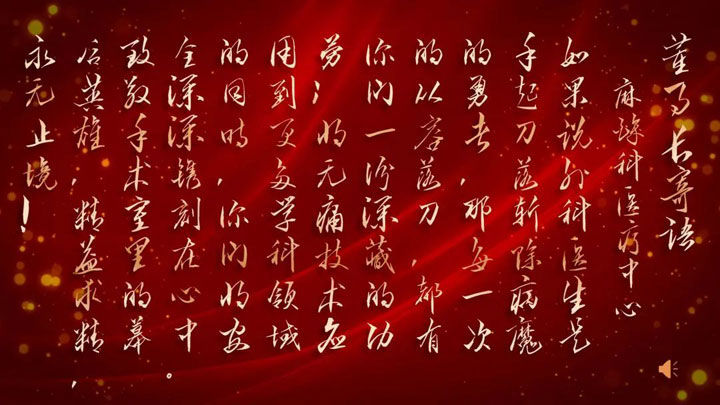 董事长寄语
麻醉科医疗中心
如果说外科医生是
手起刀落斩除病魔
的勇者,那每一次
的从容落刀,都有
你们一份深藏的功
劳;将无痛技术应
用到更多学科领域
的同时,你们将安
全深深镌刻在心中。
致敬手术室里的幕
后英雄,精益求精,
永无止境!